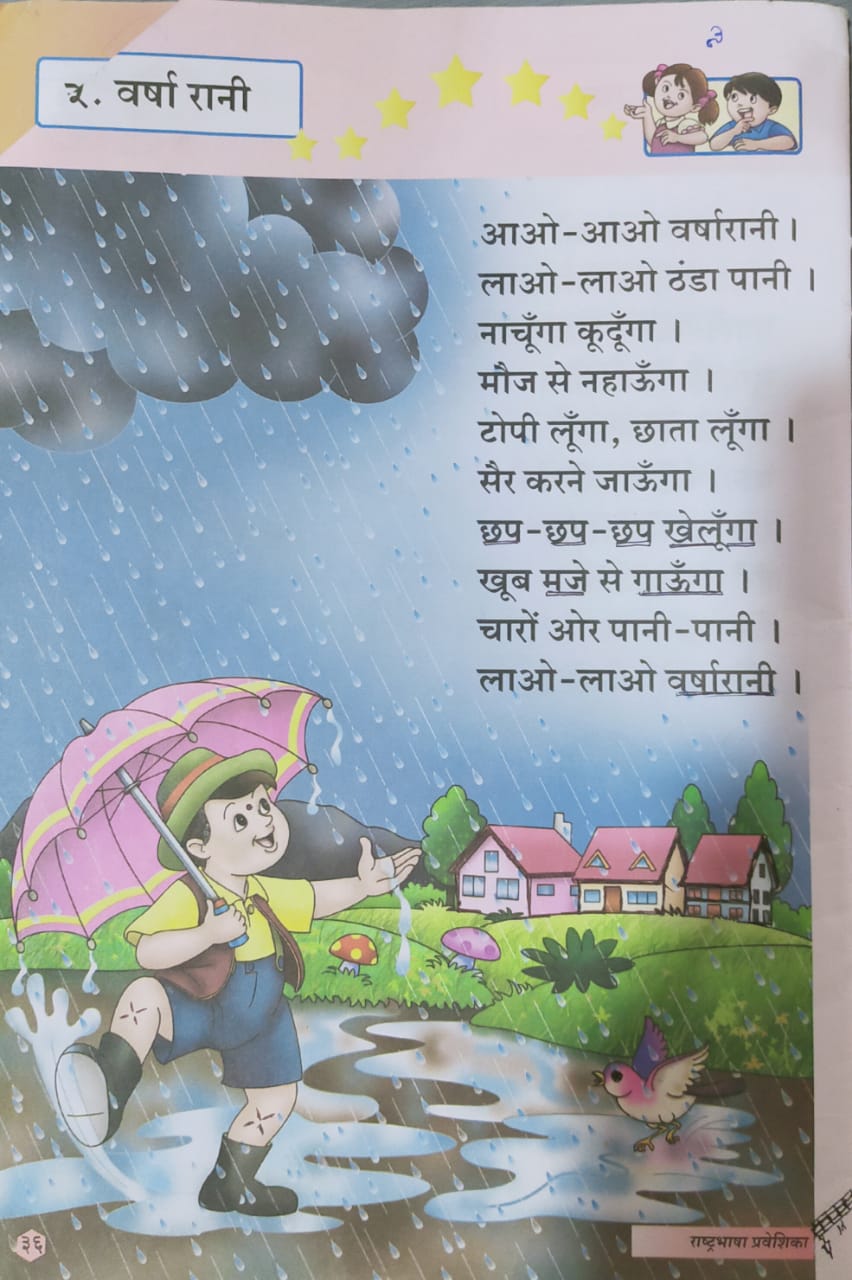 ५. वर्षा रानी
आओ-आओ वर्षारानी ।
लाओ-लाओ ठंडा पानी ।
नाचूँगा कूदूँगा ।
मौज से नहाऊँगा ।
टोपी लूँगा, छाता लूँगा ।
सैर करने जाऊँगा ।
छप-छप-छप खेलूँगा ।
खूब मजे से गाऊँगा ।
चारों ओर पानी-पानी ।
लाओ-लाओ वर्षारानी ।
३६
राष्ट्रभाषा प्रवेशिका